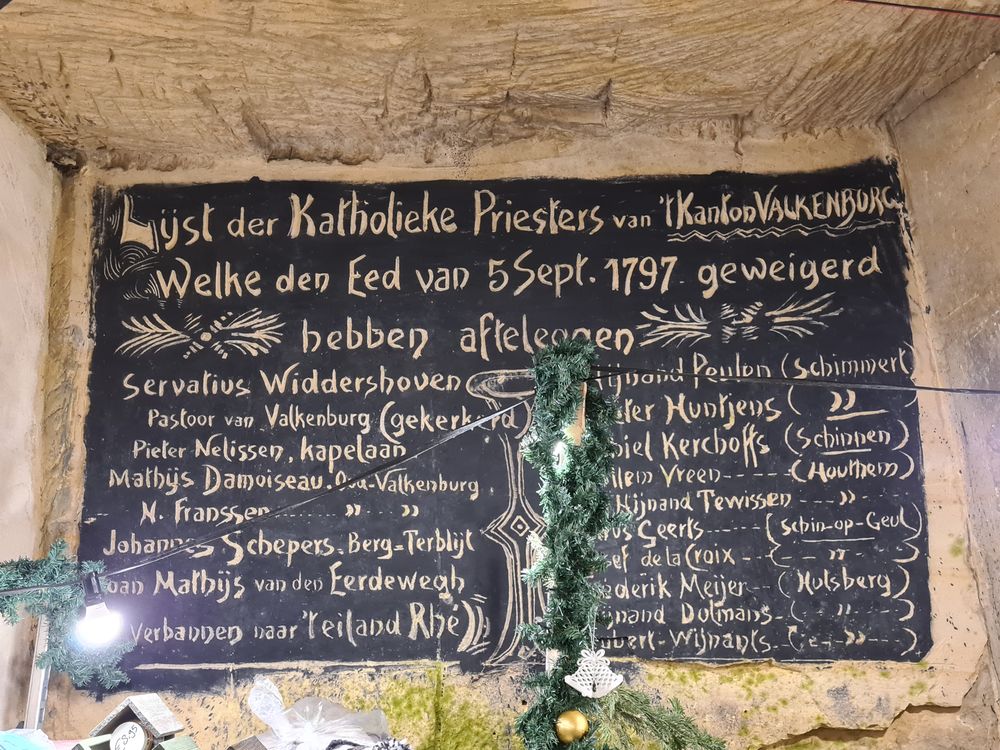 Lijst der Katholieke Priesters van 't Kanton VALKENBURG
Welke den Eed van 5 Sept. 1797 geweigerd
hebben afteleggen
Servatius Widdershoven
Pastoor van Valkenburg
Pieter Nelissen, kapelaan
Mathijs Damoiseau. Oud-Valkenburg
N. Franssen " "
Johannes Schepers. Berg=Terblijt
Joan Mathijs van den Eerdewegh
Verbannen naar 't eiland Rhé
Peulen (Schimmert)
Huntjens ( " )
Kerchoffs (Schinnen)
Vreen (Houthem)
Nijnand Tewissen "
Geerts (Schin-op-Geul)
de la Croix ( " )
Meijer (Hulsberg)
Dolmans ( " )
Wijnants